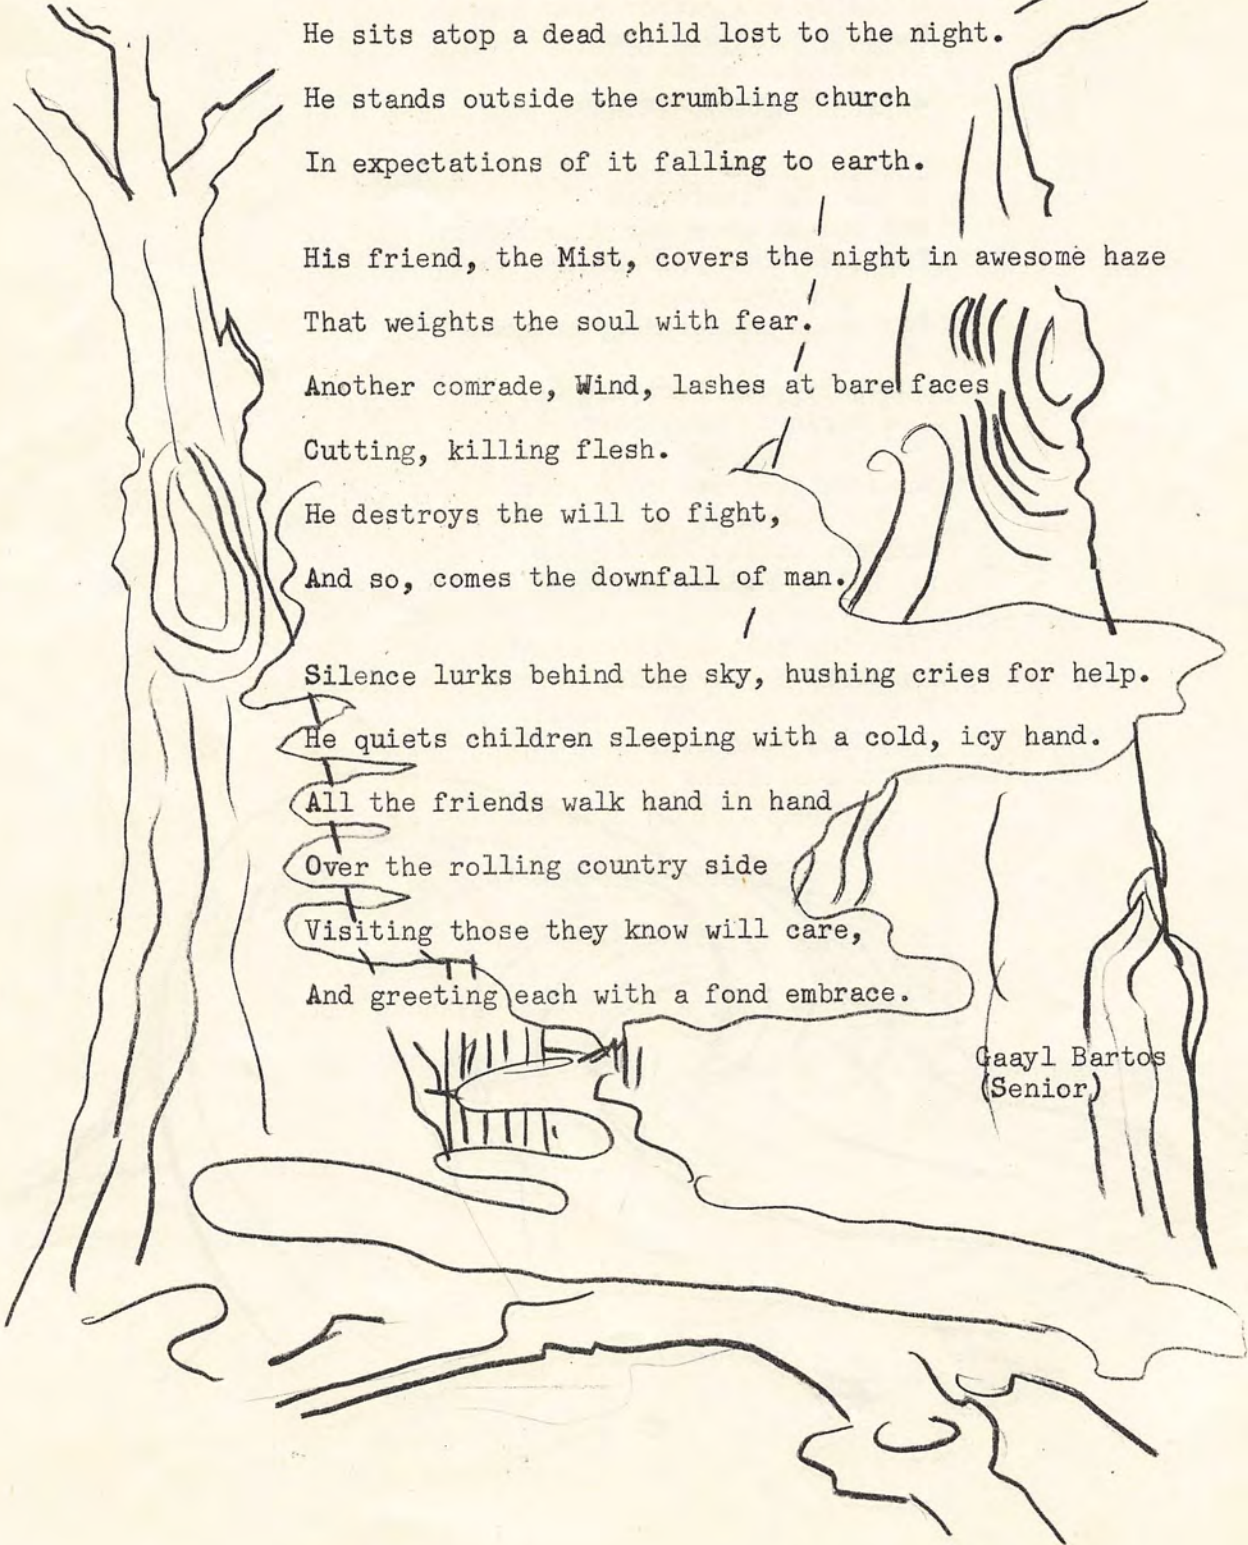 He sits atop a dead child lost to the night.
He stands outside the crumbling church
In expectations of it falling to earth.
His friend, the Mist, covers the night in awesome haze
That weights the soul with fear.
Another comrade, Wind, lashes at bare faces
Cutting, killing flesh.
He destroys the will to fight,
And so, comes the downfall of man.
Silence lurks behind the sky, hushing cries for help.
He quiets children sleeping with a cold, icy hand.
All the friends walk hand in hand
Over the rolling country side
Visiting those they know will care,
And greeting each with a fond embrace.
Gaayl Bartos
(Senior)